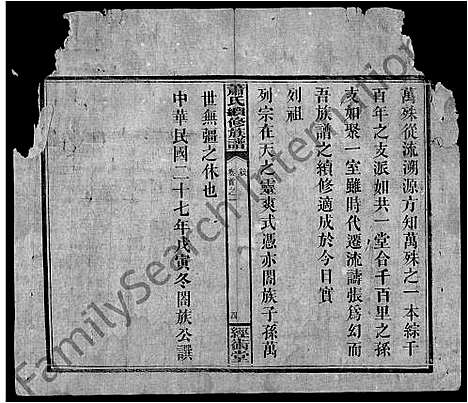 萬殊從流溯源方知萬殊之一本綜千
百年之支派如共一堂合千百里之孫
支如聚一室雖時代遷流譸張爲幻而
吾族譜之續修適成於今日實
列祖
列宗在天之靈爽式憑亦閤族子孫萬
蕭氏續修族譜
卷首之一
四
經術堂
世無疆之休也
中華民國二十七年戊寅冬閤族公譔
FamilySearch International